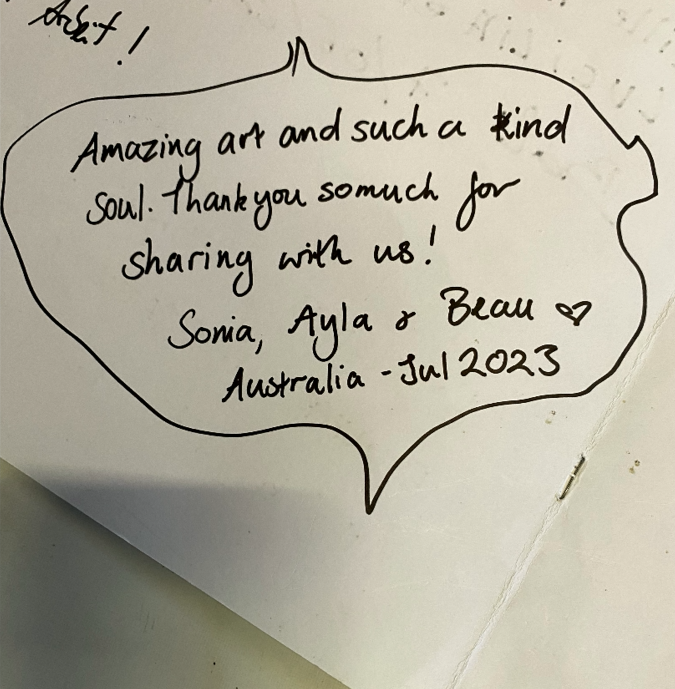 Amazing art and such a kind
soul. Thank you so much for
sharing with us!
Sonia, Ayla & Beau ♡
Australia - Jul 2023